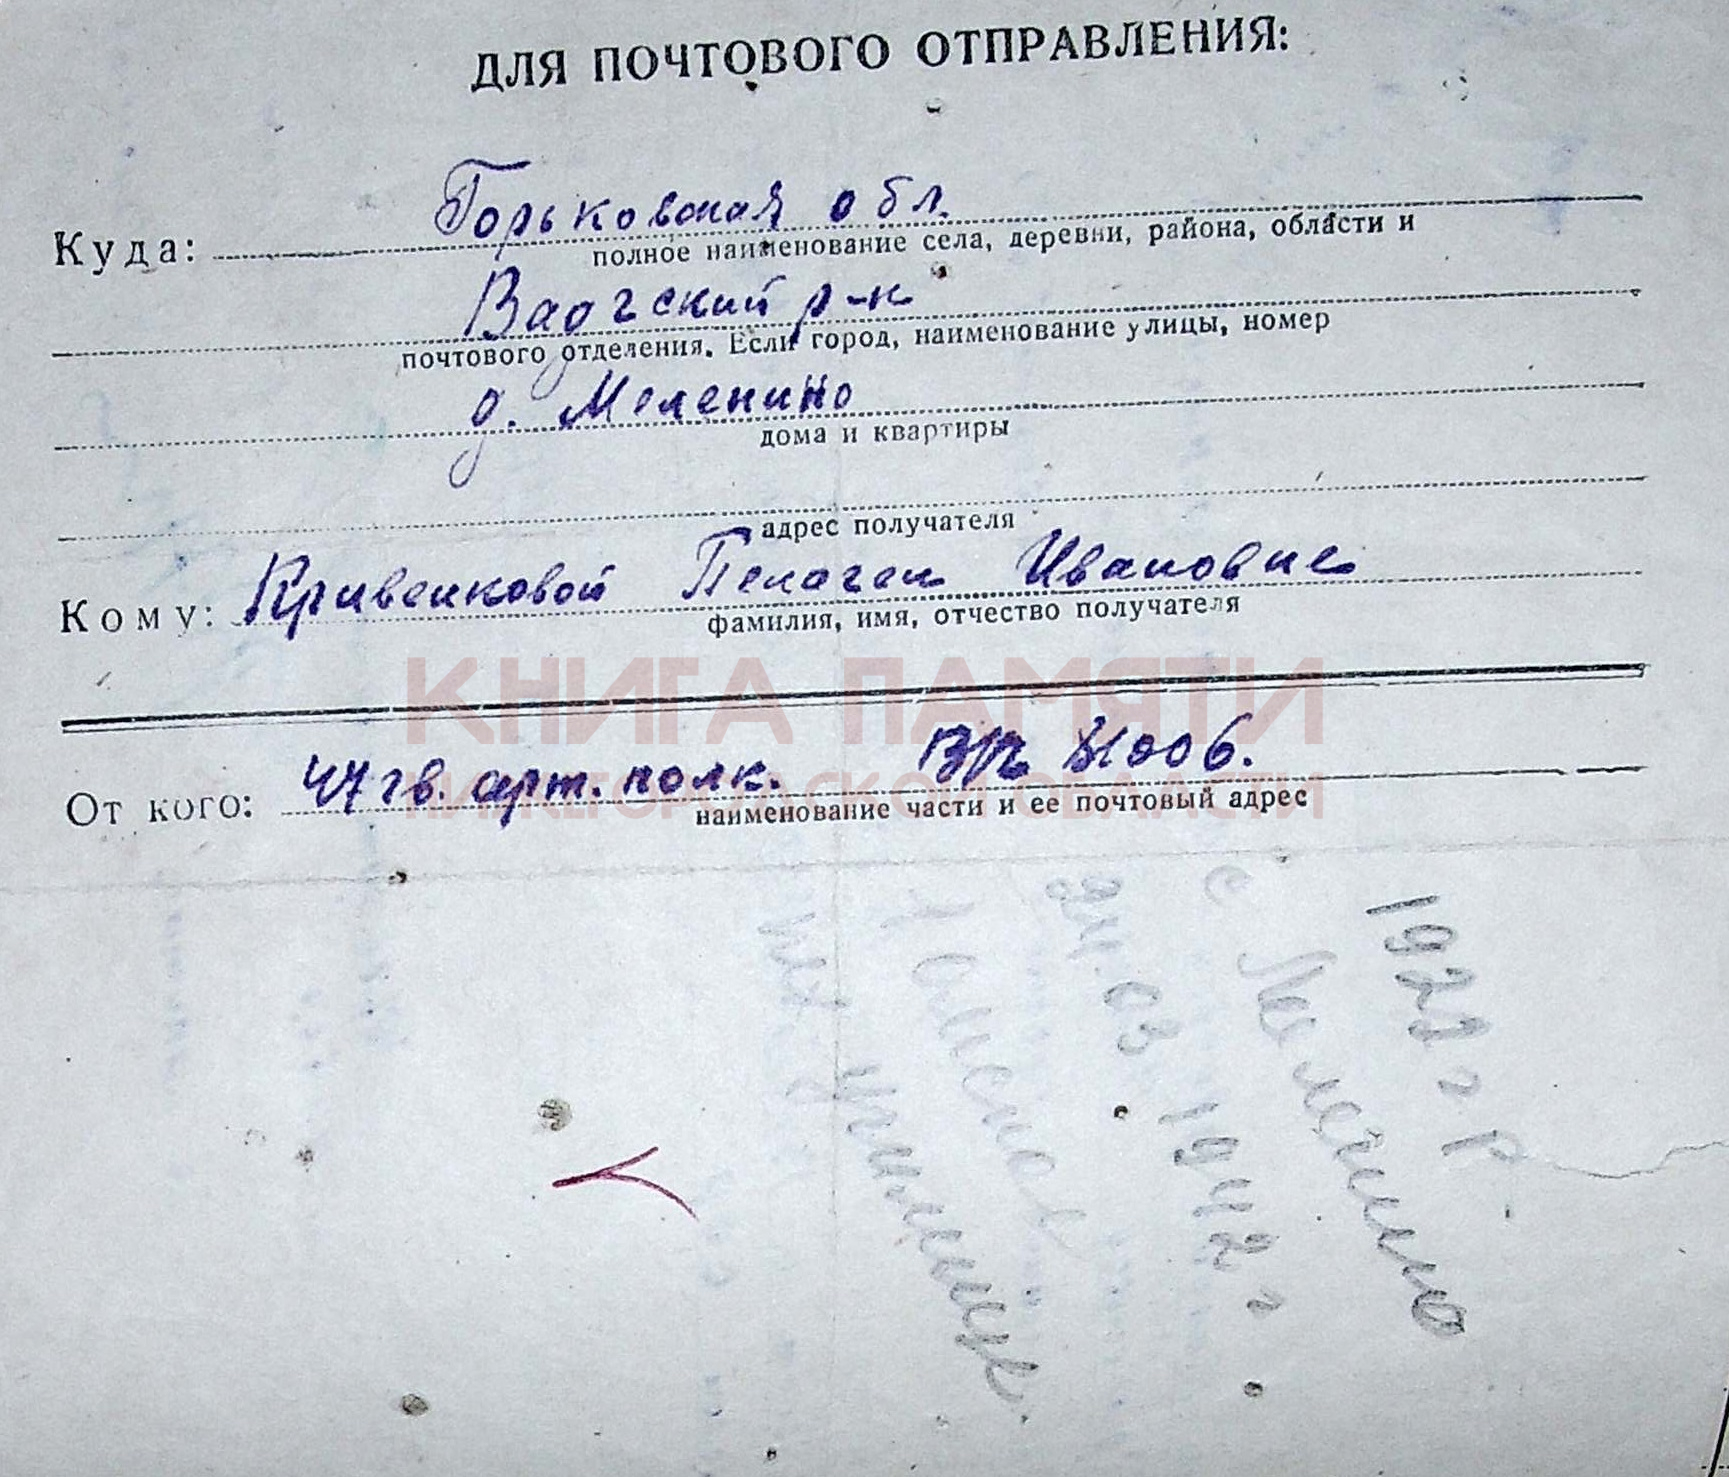 ДЛЯ ПОЧТОВОГО ОТПРАВЛЕНИЯ:
Куда: Горьковская обл.
полное наименование села, деревни, района, области и
Ваочский р-н
почтового отделения. Если город, наименование улицы, номер
д. Меленино
дома и квартиры
адрес получателя
Кому: Кривенковой Пелагеи Ивановне
фамилия, имя, отчество получателя
КНИГА ПАМЯТИ
НИЖЕГОРОДСКОЙ ОБЛАСТИ
От кого: 47 гв. арт. полк. 31006.
наименование части и ее почтовый адрес
1922 г р
с Меленино
24.03 1942 г